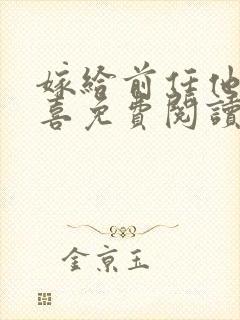 嫁给前任他
喜免費閱讀
金京玉